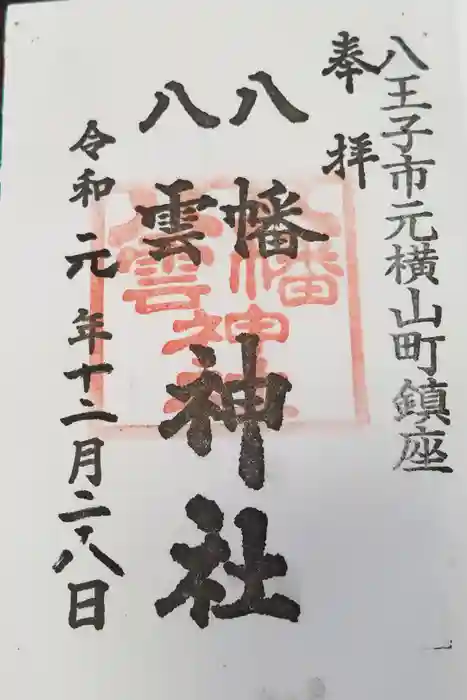 八王子市元横山町鎮座
奉拝
八幡
八雲
神社
令和元年十二月二八日
八幡
八雲
神社